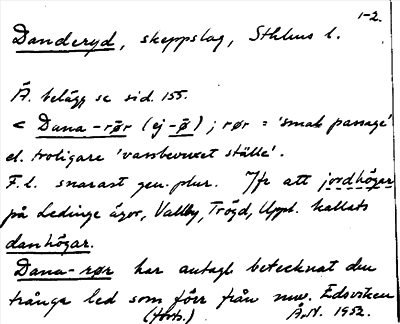 1-2.
Danderyd, skeppslag, Sthlms l.
Ä. belägg se sid. 155.
< Dana-rør (ej -ø̄) ; rør = 'smal passage'
el. troligare 'vassbevuxet ställe'.
F.l. snarast gen. plur. Jfr att jordhögar
på Ledinge ägor, Vallby, Trögd, Uppl. kallats
danhögar.
Dana-rør har antagl. betecknat den
trånga led som förr från nuv. Edsviken
(forts.) Å.N. 1952.